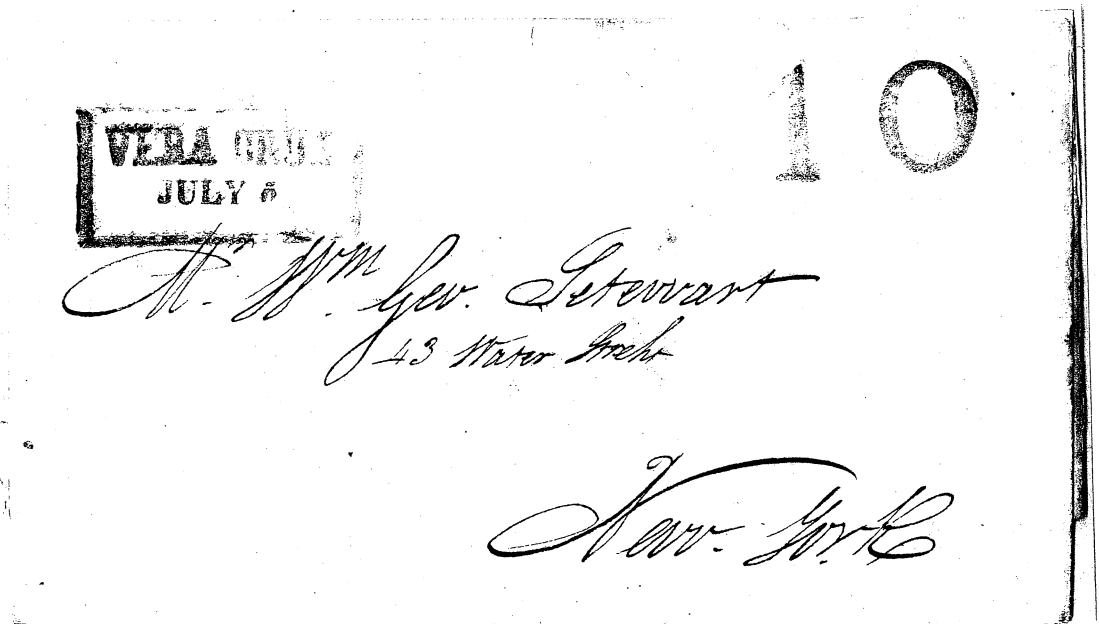 10
VERA CRUZ
JULY 5
Mr. Wm. Geo. Stewart
43 Water Street
New York